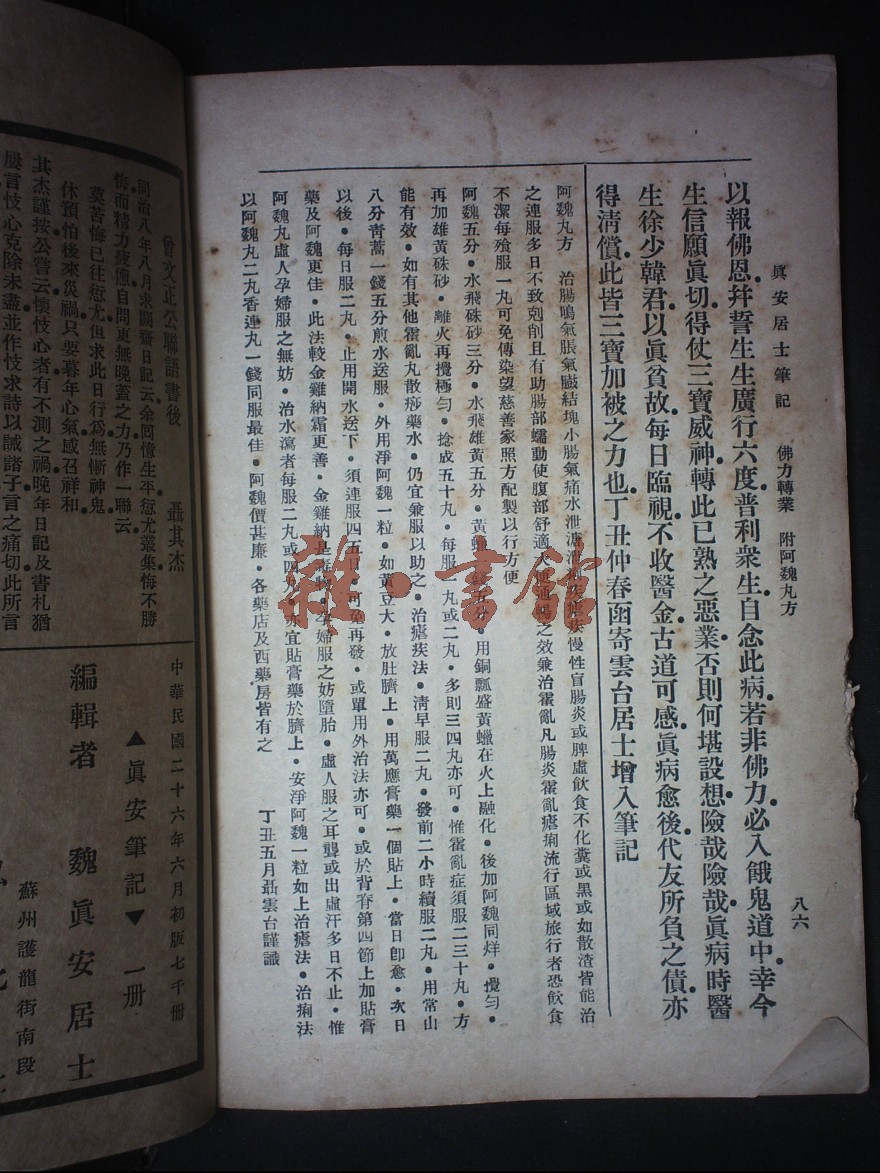 眞安居士筆記　佛力轉業　附阿魏九方　八六
以報佛恩幷誓生生廣行六度普利衆生自念此病若非佛力必入餓鬼道中幸今
生信願眞切得仗三寶威神轉此已熟之惡業否則何堪設想險哉險哉眞病時醫
生徐少韓君以眞貧故每日臨視不收醫金古道可感眞病愈後代友所負之債亦
得淸償此皆三寶加被之力也丁丑仲春函寄雲台居士增入筆記
阿魏九方　治腸鳴氣脹氣臌結塊小腸氣痛水泄溏泄疾瘧疾慢性盲腸炎或脾虛飮食不化糞或黑或如散渣皆能治
之連服多日不致剋削且有助腸部蠕動使腹部舒適大便通暢之效兼治霍亂凡腸炎霍亂瘧痢流行區域旅行者恐飮食
不潔每飱服一九可免傳染望慈善家照方配製以行方便
阿魏五分●水飛硃砂三分●水飛雄黃五分●黃蠟五分●用銅瓢盛黃蠟在火上融化●後加阿魏同烊●攪勻●
再加雄黃硃砂●離火再攪極勻●捻成五十九●每服一九或二九●多則三四九亦可●惟霍亂症須服二三十九●方
能有效●如有其他霍亂丸散痧藥水●仍宜兼服以助之●治瘧疾法●淸早服二九●發前二小時續服二九●用常山
八分靑蒿一錢五分煎水送服●外用淨阿魏一粒●如黃豆大●放肚臍上●用萬應膏藥一個貼上●當日卽愈●次日
以後●每日服二九●止用開水送下●須連服四五日●可免再發●或單用外治法亦可●或於背脊第四節上加貼膏
藥及阿魏更佳●此法較金雞納霜更善●金雞納是毒物●孕婦服之妨墮胎●虛人服之耳聾或出虛汗多日不止●惟
阿魏九虛人孕婦服之無妨●治水瀉者每服二九或四九●亦宜貼膏藥於臍上●安淨阿魏一粒如上治瘧法●治痢法
以阿魏九二九香連九一錢同服最佳●阿魏價甚廉●各藥店及西藥房皆有之　丁丑五月聶雲台謹識
曾文正公聯語書後　聶其杰
同治八年八月求闕齋日記云余回憶生平愆尤叢集悔不勝
悔而精力疲憊自問更無晚蓋之力乃作一聯云
莫苦悔已往愆尤但求此日行爲無慚神鬼
休預怕後來災禍只要暮年心氣感召祥和
其杰謹按公嘗云懷忮心者有不測之禍晚年日記及書札猶
屢言忮心克除未盡並作忮求詩以誡諸子言之痛切此所言
中華民國二十六年六月初版七千冊
▲眞安筆記▼　一冊
編輯者　魏眞安居士
蘇州護龍街南段
雜·書館